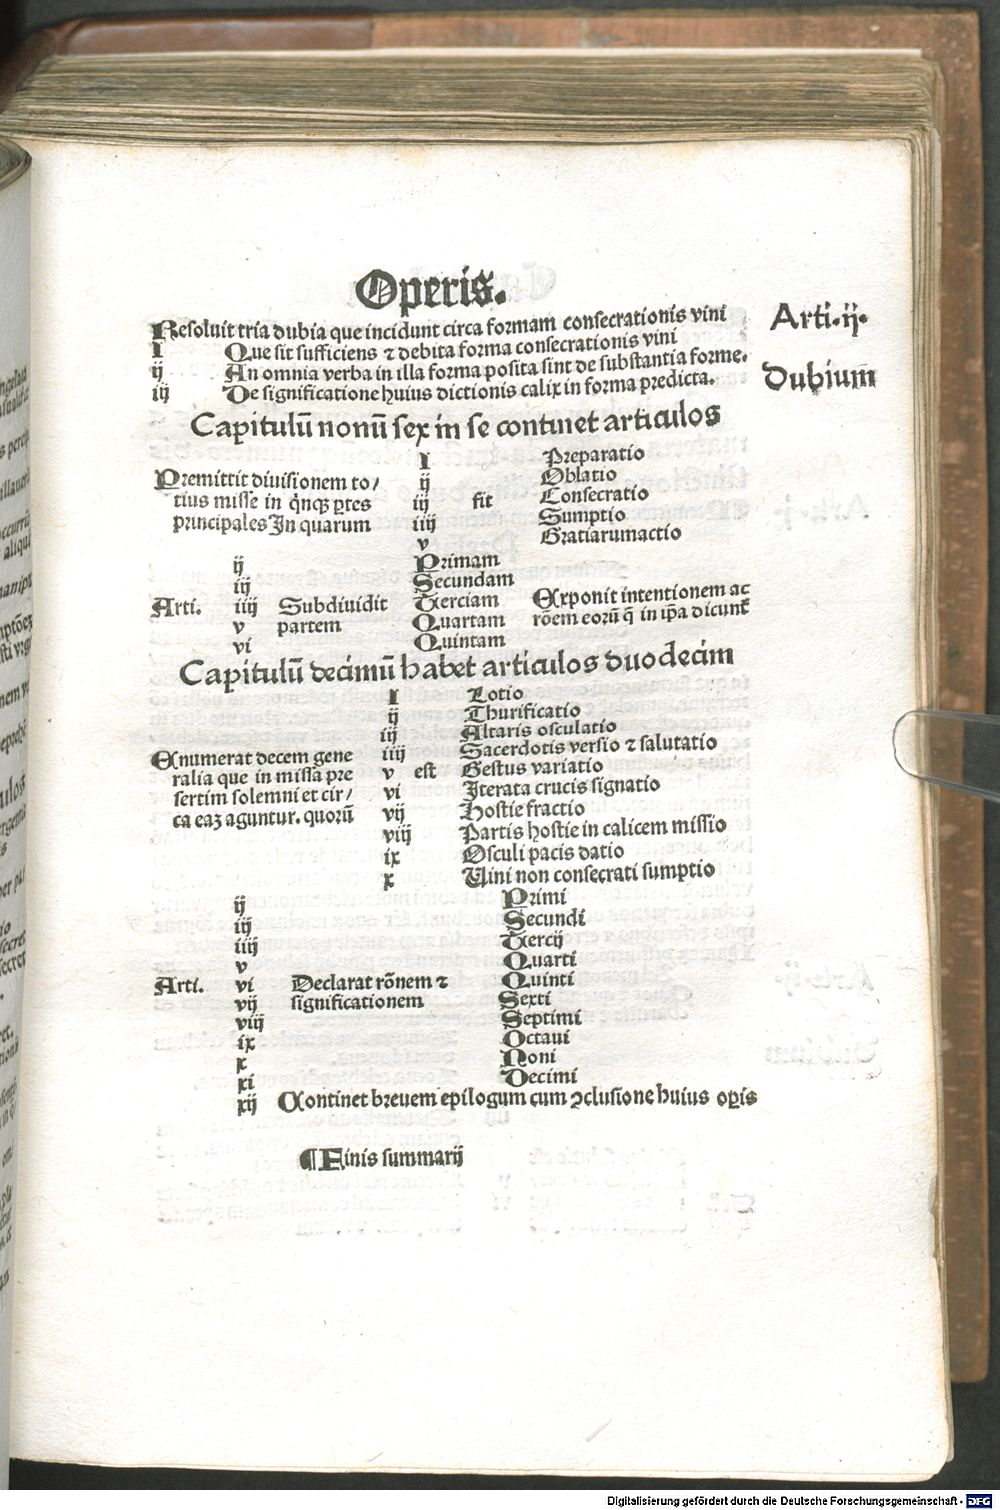 Operis.
Resoluit tria dubia que incidunt circa formam consecrationis vini
Arti.ij.
I Que sit sufficiens ⁊ debita forma consecrationis vini
ij An omnia verba in illa forma posita sint de substantia forme.
Dubium
iij De significatione huius dictionis calix in forma predicta.
Capitulū nonū sex in se continet articulos
I Preparatio
Premittit diuisionem to/ ij Oblatio
tius misse in qͥnqꝫ ꝑtes iij fit Consecratio
principales In quarum iiij Sumptio
v Gratiarumactio
ij Primam
iij Secundam
Arti. iiij Subdiuidit Terciam Exponit intentionem ac
v partem Quartam rōem eorū q̄ in ip̄a dicunt̄
vi Quintam
Capitulū decimū habet articulos duodecim
I Lotio
ij Thurificatio
iij Altaris osculatio
Enumerat decem gene iiij Sacerdotis versio ⁊ salutatio
ralia que in missa pre v est Gestus variatio
sertim solemni et cir/ vi Iterata crucis signatio
ca eaꝫ aguntur. quorū vij Hostie fractio
viij Partis hostie in calicem missio
ix Osculi pacis datio
x Uini non consecrati sumptio
ij Primi
iij Secundi
iiij Tercij
v Quarti
Arti. vi Declarat rōnem ⁊ Quinti
vij significationem Sexti
viij Septimi
ix Octaui
x Noni
xi Decimi
xij Continet breuem epilogum cum ꝯclusione huius oꝑis
¶Finis summarij
Digitalisierung gefördert durch die Deutsche Forschungsgemeinschaft - DFG